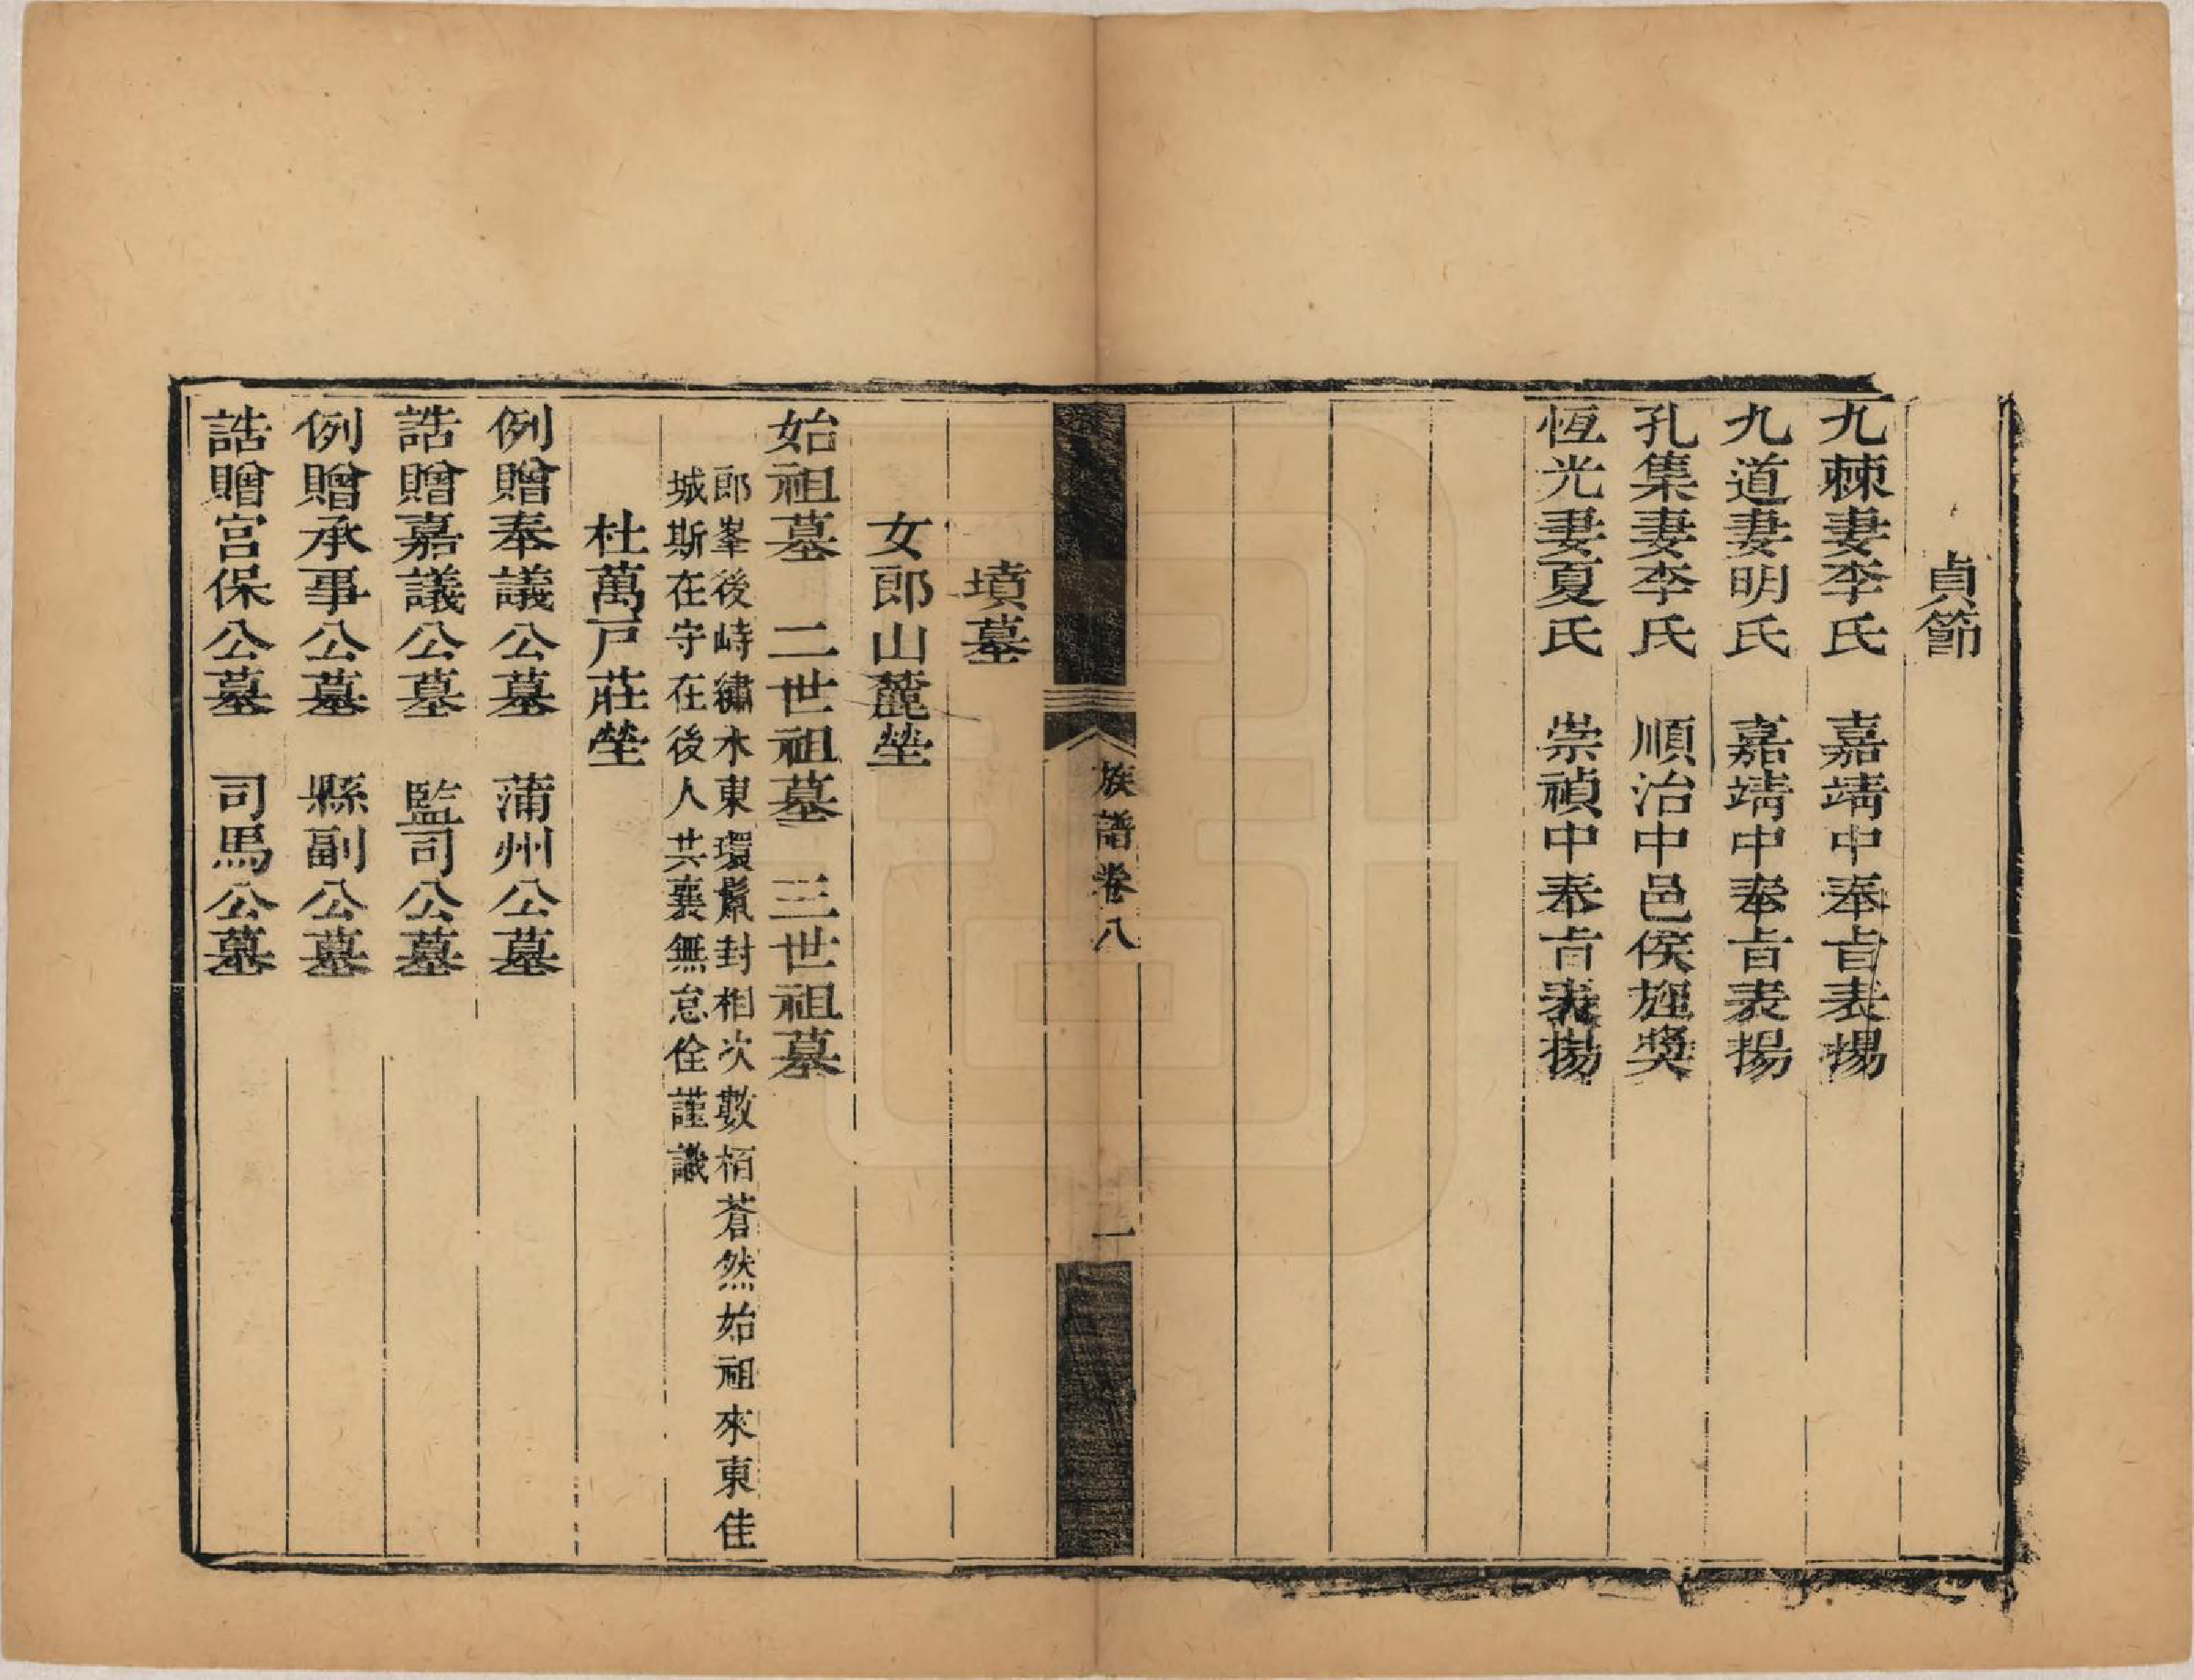 貞節
九棘妻李氏　嘉靖中奉旨表揚
九道妻明氏　嘉靖中奉旨表揚
孔集妻李氏　順治中邑侯旌奬
恆光妻夏氏　崇禎中奉旨表揚
族譜卷八　一
墳墓
女郎山麓塋
始祖墓　二世祖墓　三世祖墓
郎峯後峙繡水東環鬣封相次數栢蒼然始祖來東佳
城斯在守在後人共襄無怠佺謹識
杜萬戸莊塋
例贈奉議公墓　蒲州公墓
誥贈嘉議公墓　監司公墓
例贈承事公墓　縣副公墓
誥贈宮保公墓　司馬公墓